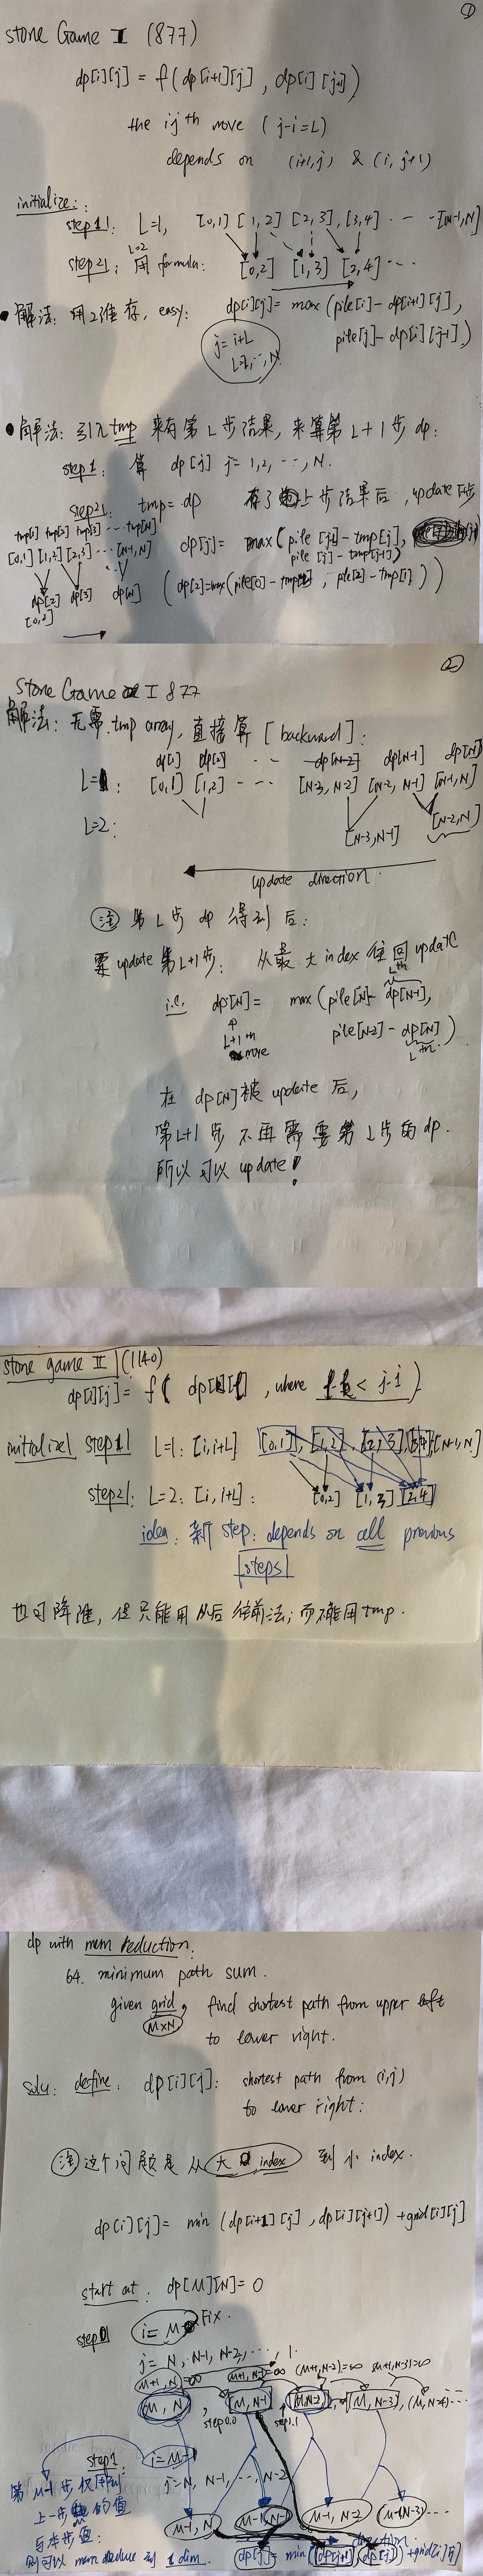 ①
Stone Game I (877)
dp[i][j] = f(dp[i+1][j], dp[i][j-1])
the ij th move (j-i=L)
depends on (i+1,j) & (i, j+1)
initialize:
step1: L=1, [0,1] [1,2] [2,3], [3,4] - - - [N-1,N]
L=2
step2: 用 formula: [0,2] [1,3] [2,4] ...
解法: 用2维存, easy: dp[i][j]= max(pile[i]-dp[i+1][j],
pile[j]-dp[i][j-1])
j=i+L
L=2,...,N
解法: 引入tmp 来存第L步结果, 来算第L+1步dp:
step1: 算 dp[j] j=1,2,...,N.
step2: tmp=dp 存了上步结果后, update 下步
tmp[1] tmp[2] tmp[3] ... tmp[N]
[0,1] [1,2] [2,3] ... [N-1,N]
dp[j]= max(pile[j-L]-tmp[j],
pile[j]-tmp[j-1])
dp[2] dp[3] dp[N]
[0,2]
(dp[2]=max(pile[0]-tmp[2], pile[2]-tmp[1]))
②
Stone Game I 877
解法: 无需 tmp array, 直接算 [backward]:
dp[1] dp[2] ... dp[N-2] dp[N-1] dp[N]
L=1: [0,1] [1,2] - - - [N-3,N-2] [N-2,N-1] [N-1,N]
L=2: [N-3,N-1] [N-2,N]
update direction.
注 第L步 dp 得到后:
要update第L+1步: 从最大index往回update
L th
i.e. dp[N]= max(pile[N]-dp[N-1],
L+1 th
move
pile[N-2]-dp[N])
L th
在 dp[N]被update后,
第L+1步 不再需要第L步的dp.
所以可以update!
stone game II (1140)
dp[i][j]= f( dp[k][l], where l-k < j-i )
initialize step1 L=1: [i,i+L] [0,1], [1,2], [2,3], [3,4], [N-1,N]
step2: L=2: [i,i+L]: [0,2] [1,3] [2,4]
idea: 新step: depends on all previous
steps
也可降维, 但只能用从后往前法; 而不能用tmp.
dp with mem reduction:
64. minimum path sum.
given grid, find shortest path from upper left
M×N
to lower right.
Solu: define: dp[i][j]: shortest path from (i,j)
to lower right:
注 这个问题是从大index 到小index.
dp[i][j]= min(dp[i+1][j], dp[i][j+1])+grid[i][j]
start at: dp[M][N]=0
step0 i=M Fix.
j=N, N-1, N-2, ..., 1.
(M+1,N)=∞ (M+1,N-1)=∞ (M+1,N-2)=∞ (M+1,N-3)=∞
(M,N) (M,N-1) (M,N-2) (M,N-3), (M,N-4)...
step0.0 step1.1
step1: i=M-1
j=N, N-1, ..., N-2
第M-1步仅用到
上一步的值
与本步值:
则可以 mem reduce 到 1 dim.
(M-1,N) (M-1,N-1) (M-1,N-2) (M-1,N-3)...
direction
dp[j]= min(dp[j+1], dp[j])+grid[i][j]